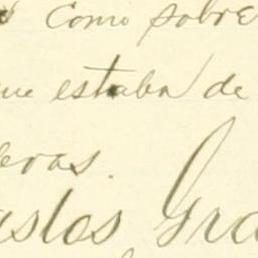 Como sobre
que estaba de
eras.
astos, Gra